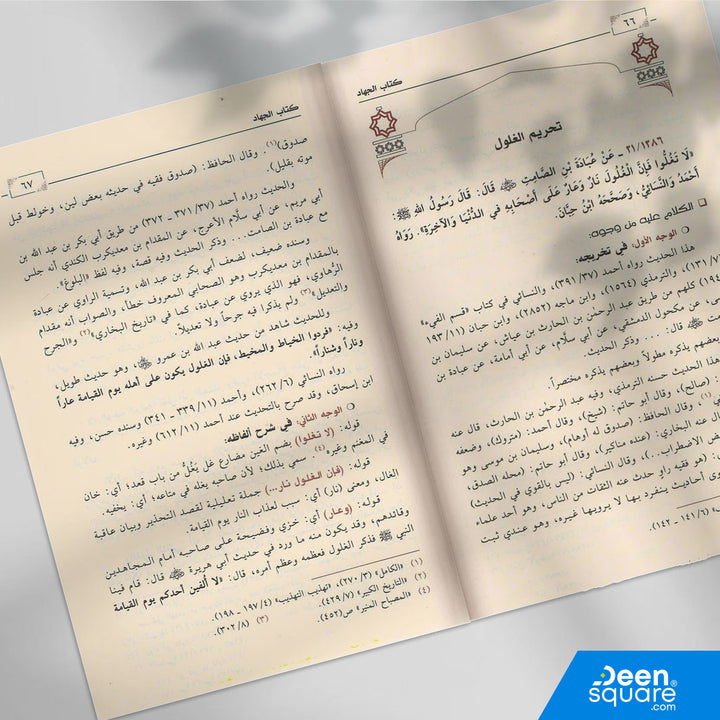 ٦٦
كتاب الجهاد
تحريم الغلول
٢١/١٢٨٦ ـ عَنْ عُبَادَةَ بْنِ الصَّامِتِ ﷺ قَالَ: قَالَ رَسُولُ اللهِ ﷺ:
«لَا تَغُلُّوا فَإِنَّ الْغُلُولَ نَارٌ وَعَارٌ عَلَى أَصْحَابِهِ فِي الدُّنْيَا وَالْآخِرَةِ». رَوَاهُ
أَحْمَدُ وَالنَّسَائِيُّ، وَصَحَّحَهُ ابْنُ حِبَّانَ.
الكلام عليه من وجوه:
الوجه الأول: في تخريجه:
هذا الحديث رواه أحمد (٣٩١/٣٧)، والنسائي في كتاب «قسم الفيء»
(١٣١/٧)، والترمذي (١٥٦٤)، وابن ماجه (٢٨٥٢)، وابن حبان (١٩٣/١١
كلهم من طريق عبد الرحمن بن الحارث بن عياش، عن سليمان بن
عن مكحول الدمشقي، عن أبي سلّام، عن أبي أمامة، عن عبادة بن
قال: ... وذكر الحديث.
وبعضهم يذكره مطولاً وبعضهم يذكره مختصراً.
هذا الحديث حسنه الترمذي، وفيه عبد الرحمن بن الحارث، قال عنه
(صالح)، وقال أبو حاتم: (شيخ)، وقال أحمد: (متروك)، وضعفه
وقال الحافظ: (صدوق له أوهام)، وسليمان بن موسى وهو
قال عنه البخاري: (عنده مناكير)، وقال أبو حاتم: (محله الصدق،
الاضطراب..)، وقال النسائي: (ليس بالقوي في الحديث)
(هو فقيه راوٍ حدث عنه الثقات من الناس، وهو أحد علماء
أحاديث ينفرد بها لا يرويها غيره، وهو عندي ثبت
(١٤١/٦ ـ ١٤٢).
٦٧
كتاب الجهاد
صدوق)(١). وقال الحافظ: (صدوق فقيه في حديثه بعض لين، وخولط قبل
موته بقليل).
والحديث رواه أحمد (٣٧١/٣٧ ـ ٣٧٢) من طريق أبي بكر بن عبد الله بن
أبي مريم، عن أبي سلّام الأعرج، عن المقدام بن معديكرب الكندي أنه جلس
مع عبادة بن الصامت... وذكر الحديث وفيه قصة، وفيه لفظ «البلوغ».
وسنده ضعيف، لضعف أبي بكر بن عبد الله، وتسمية الراوي عن عبادة
بالمقدام بن معديكرب وهو الصحابي المعروف خطأ، والصواب أنه مقدام
الرُّهاوي، فهو الذي يروي عن عبادة، كما في «تاريخ البخاري»(٢) و«الجرح
والتعديل»(٣) ولم يذكرا فيه جرحاً ولا تعديلاً.
وللحديث شاهد من حديث عبد الله بن عمرو ﷺ، وهو حديث طويل،
وفيه: «فردوا الخياط والمخيط، فإن الغلول يكون على أهله يوم القيامة عاراً
وناراً وشناراً».
رواه النسائي (٢٦٢/٦)، وأحمد (٣٣٩/١١ ـ ٣٤١) وسنده حسن، وفيه
ابن إسحاق، وقد صرح بالتحديث عند أحمد (٦١٢/١١) وغيره.
الوجه الثاني: في شرح ألفاظه:
قوله: (لا تغلوا) بضم الغين مضارع غَل يَغُلُّ من باب قعد؛ أي: خان
في المغنم وغيره(٤). سمي بذلك؛ لأن صاحبه يغله في متاعه؛ أي: يخفيه.
قوله: (فإن الغلول نار...) جملة تعليلية لقصد التحذير وبيان عاقبة
الغال، ومعنى (نار) أي: سبب لعذاب النار يوم القيامة.
قوله: (وعار) أي: خزي وفضيحة على صاحبه أمام المجاهدين
وقائدهم، وقد يكون منه ما ورد في حديث أبي هريرة ﷺ قال: قام فينا
النبي ﷺ فذكر الغلول فعظمه وعظم أمره، قال: «لا ألفين أحدكم يوم القيامة
(١) «الكامل» (٢٧٠/٣)، «تهذيب التهذيب» (١٩٧/٤ ـ ١٩٨).
(٢) «التاريخ الكبير» (٤٢٩/٧). (٣) (٣٠٢/٨).
(٤) «المصباح المنير» ص(٤٥٢).
Deen
square
.com